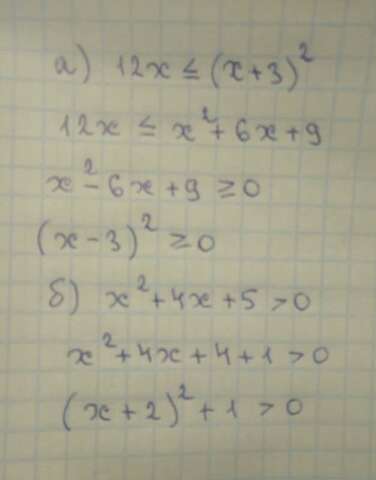 а) 12x ≤ (x+3)²
12x ≤ x²+6x+9
x²-6x+9 ≥0
(x-3)² ≥0
б) x²+4x+5 >0
x²+4x+4+1 >0
(x+2)²+1 >0